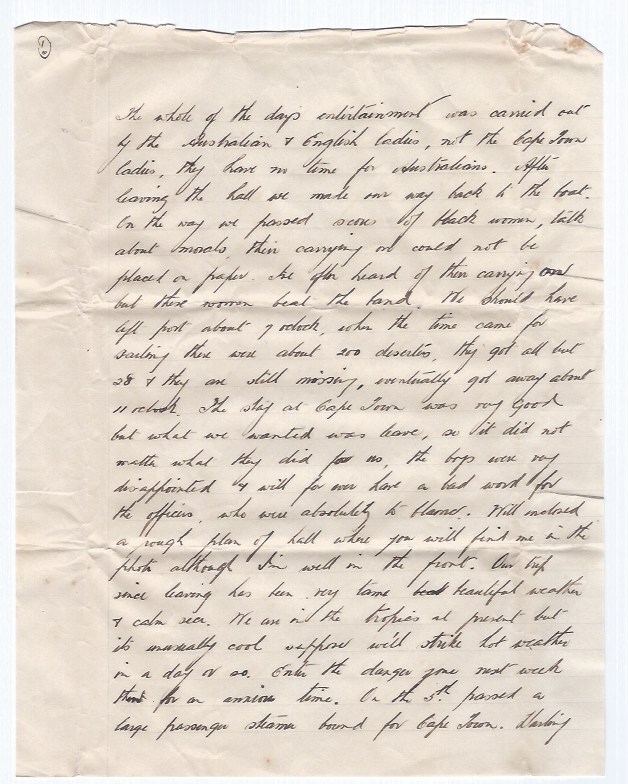 The whole of the days entertainment was carried out
by the Australian & English ladies, not the Cape Town
ladies, they have no time for Australians. After
leaving the hall we made our way back to the boat.
On the way we passed scores of black women, talk
about morals, their carrying on could not be
placed on paper. I've often heard of their carrying on
but these women beat the band. We should have
left port about 7 oclock, when the time came for
sailing there were about 200 deserters, they got all but
28 & they are still missing, eventually got away about
11 oclock. The stay at Cape Town was very good
but what we wanted was leave, so it did not
matter what they did for us, the boys were very
disappointed & will for ever have a bad word for
the officers, who were absolutely to blame. Will enclosed
a rough plan of hall where you will find me in the
photo although I'm well in the front. Our trip
since leaving has been very tame beautiful weather
& calm sea. We are in the tropics at present but
its unusually cool suppose we'll strike hot weather
in a day or so. Enter the danger zone next week
for an anxious time. On the 5th passed a
large passenger steamer bound for Cape Town. Darling